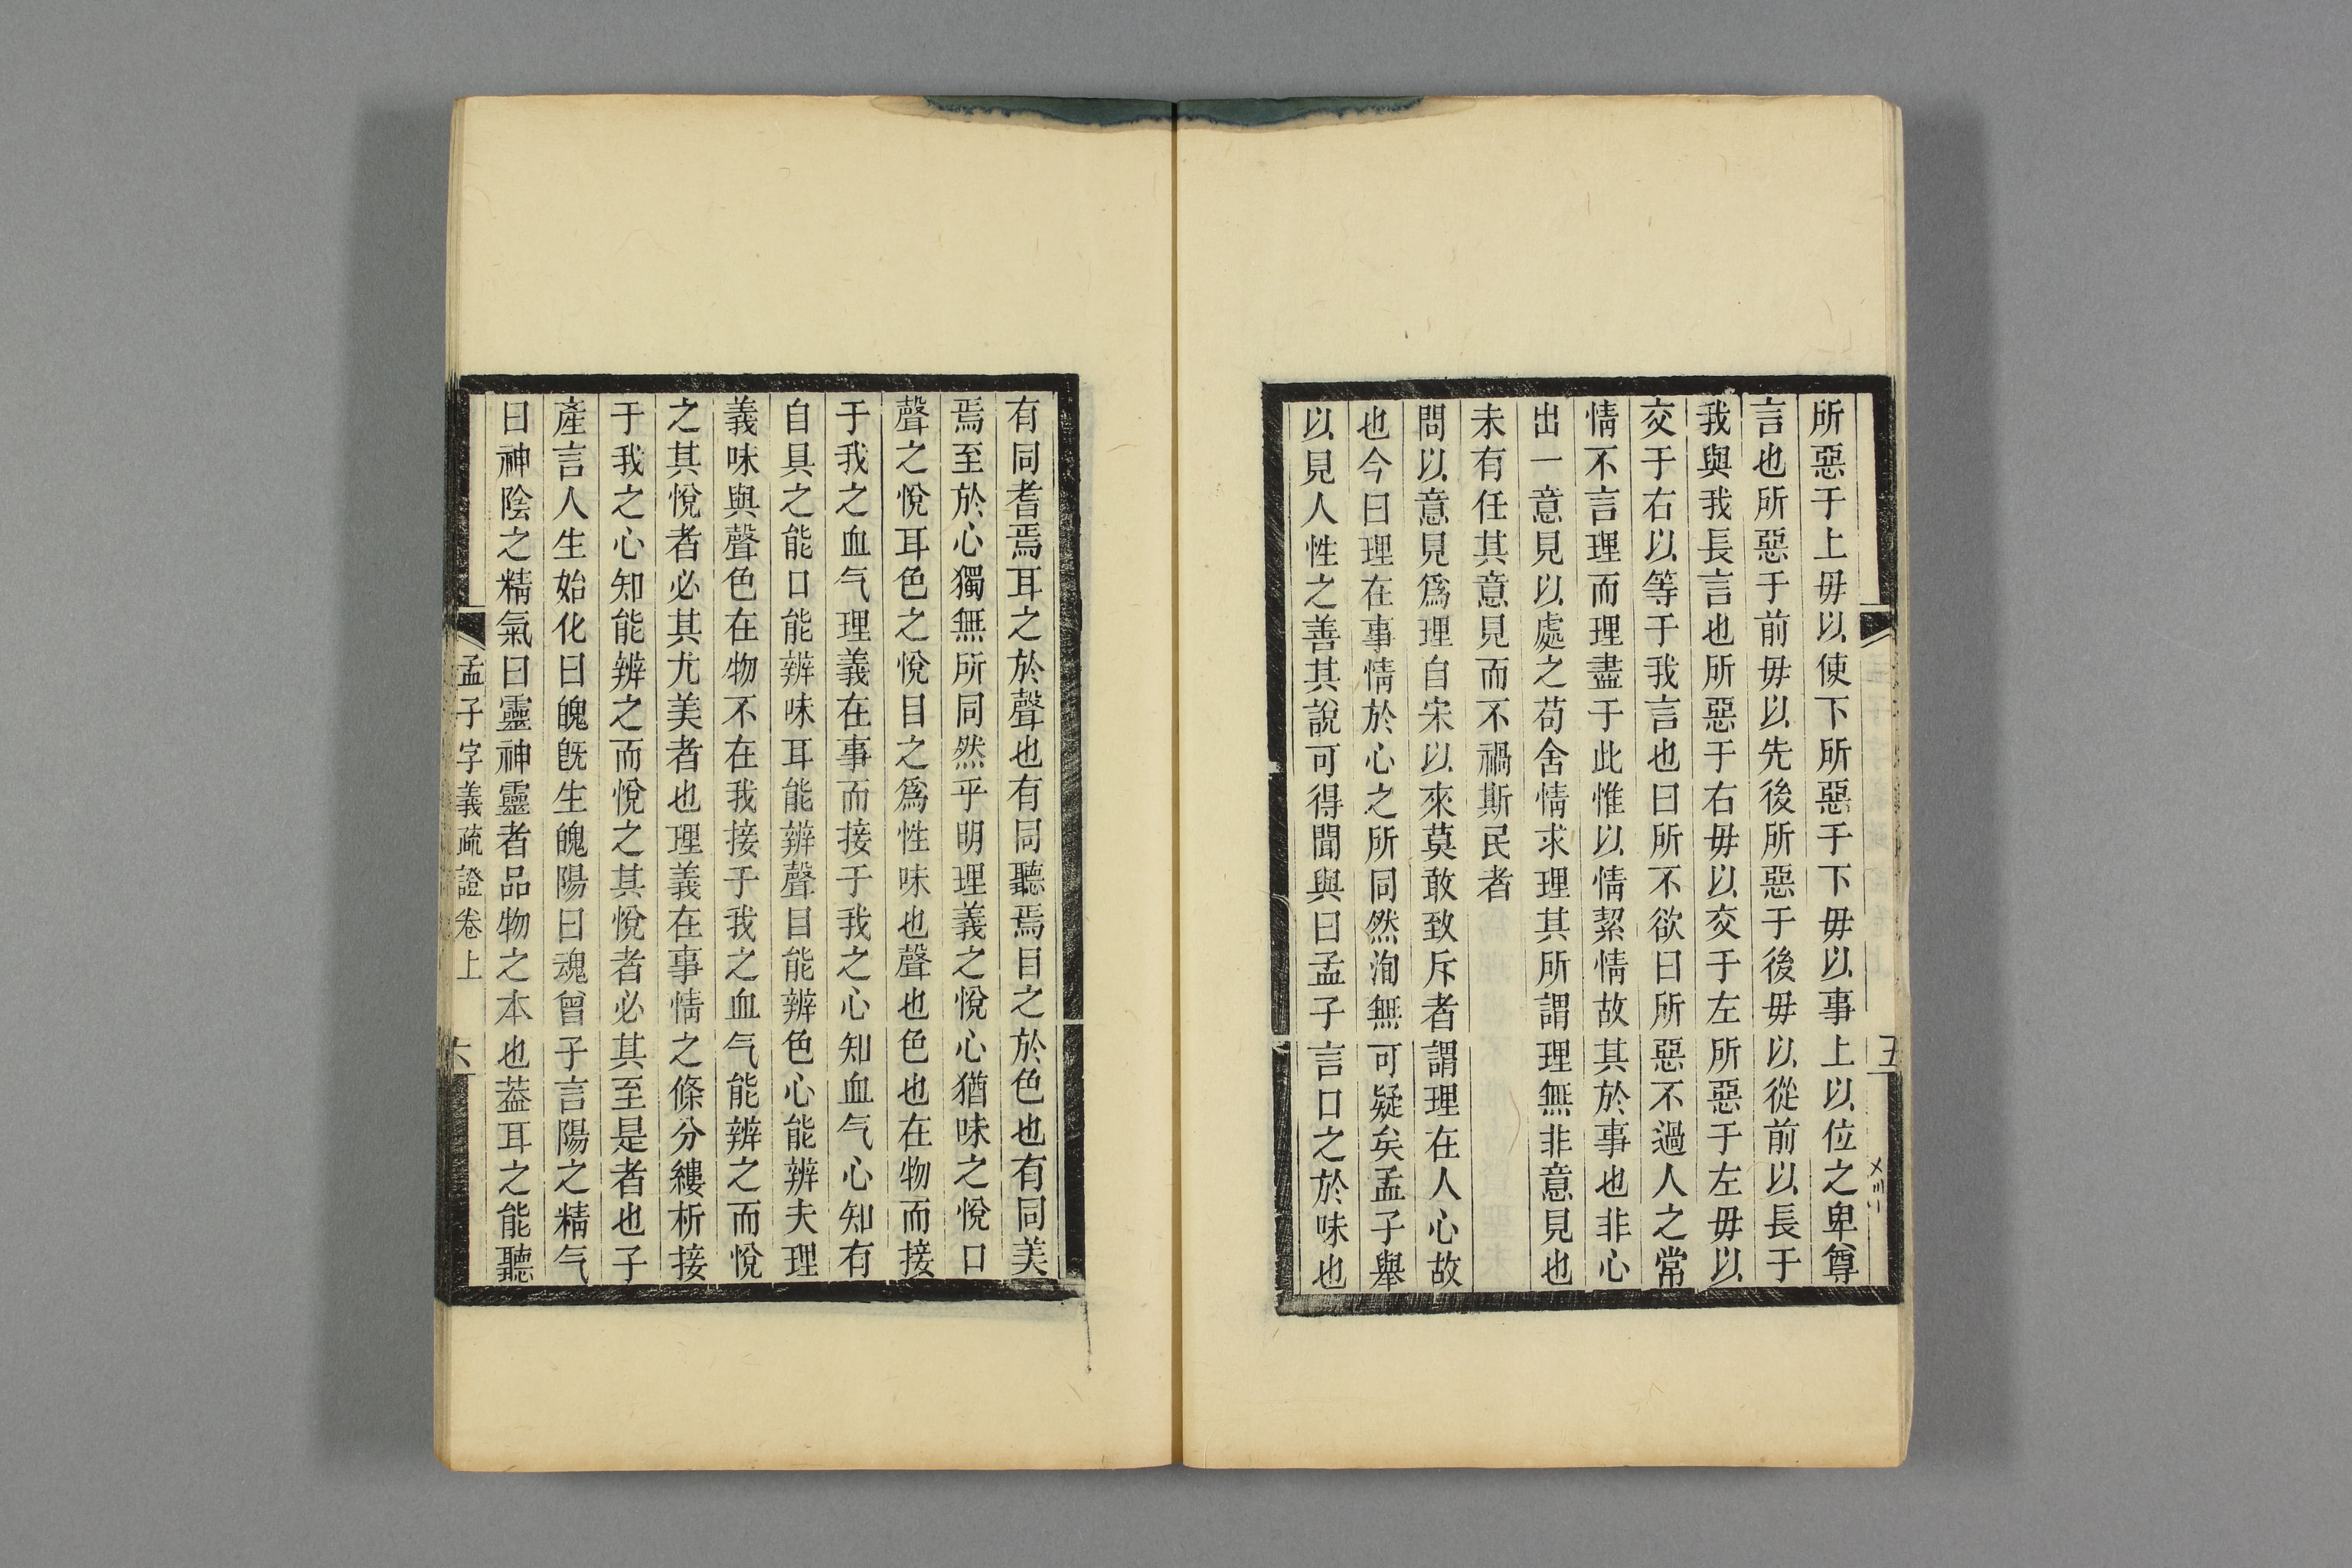 所惡于上毋以使下所惡于下毋以事上以位之卑尊
言也所惡于前毋以先後所惡于後毋以從前以長于
我與我長言也所惡于右毋以交于左所惡于左毋以
交于右以等于我言也曰所不欲曰所惡不過人之常
情不言理而理盡于此惟以情絜情故其於事也非心
出一意見以處之苟舍情求理其所謂理無非意見也
未有任其意見而不禍斯民者
問以意見爲理自宋以來莫敢致斥者謂理在人心故
也今曰理在事情於心之所同然洵無可疑矣孟子舉
以見人性之善其說可得聞與曰孟子言口之於味也
五
有同耆焉耳之於聲也有同聽焉目之於色也有同美
焉至於心獨無所同然乎明理義之悅心猶味之悅口
聲之悅耳色之悅目之爲性味也聲也色也在物而接
于我之血气理義在事而接于我之心知血气心知有
自具之能口能辨味耳能辨聲目能辨色心能辨夫理
義味與聲色在物不在我接于我之血气能辨之而悅
之其悅者必其尤美者也理義在事情之條分縷析接
于我之心知能辨之而悅之其悅者必其至是者也子
產言人生始化曰魄旣生魄陽曰魂曾子言陽之精气
曰神陰之精氣曰靈神靈者品物之本也葢耳之能聽
孟子字義疏證卷上 六